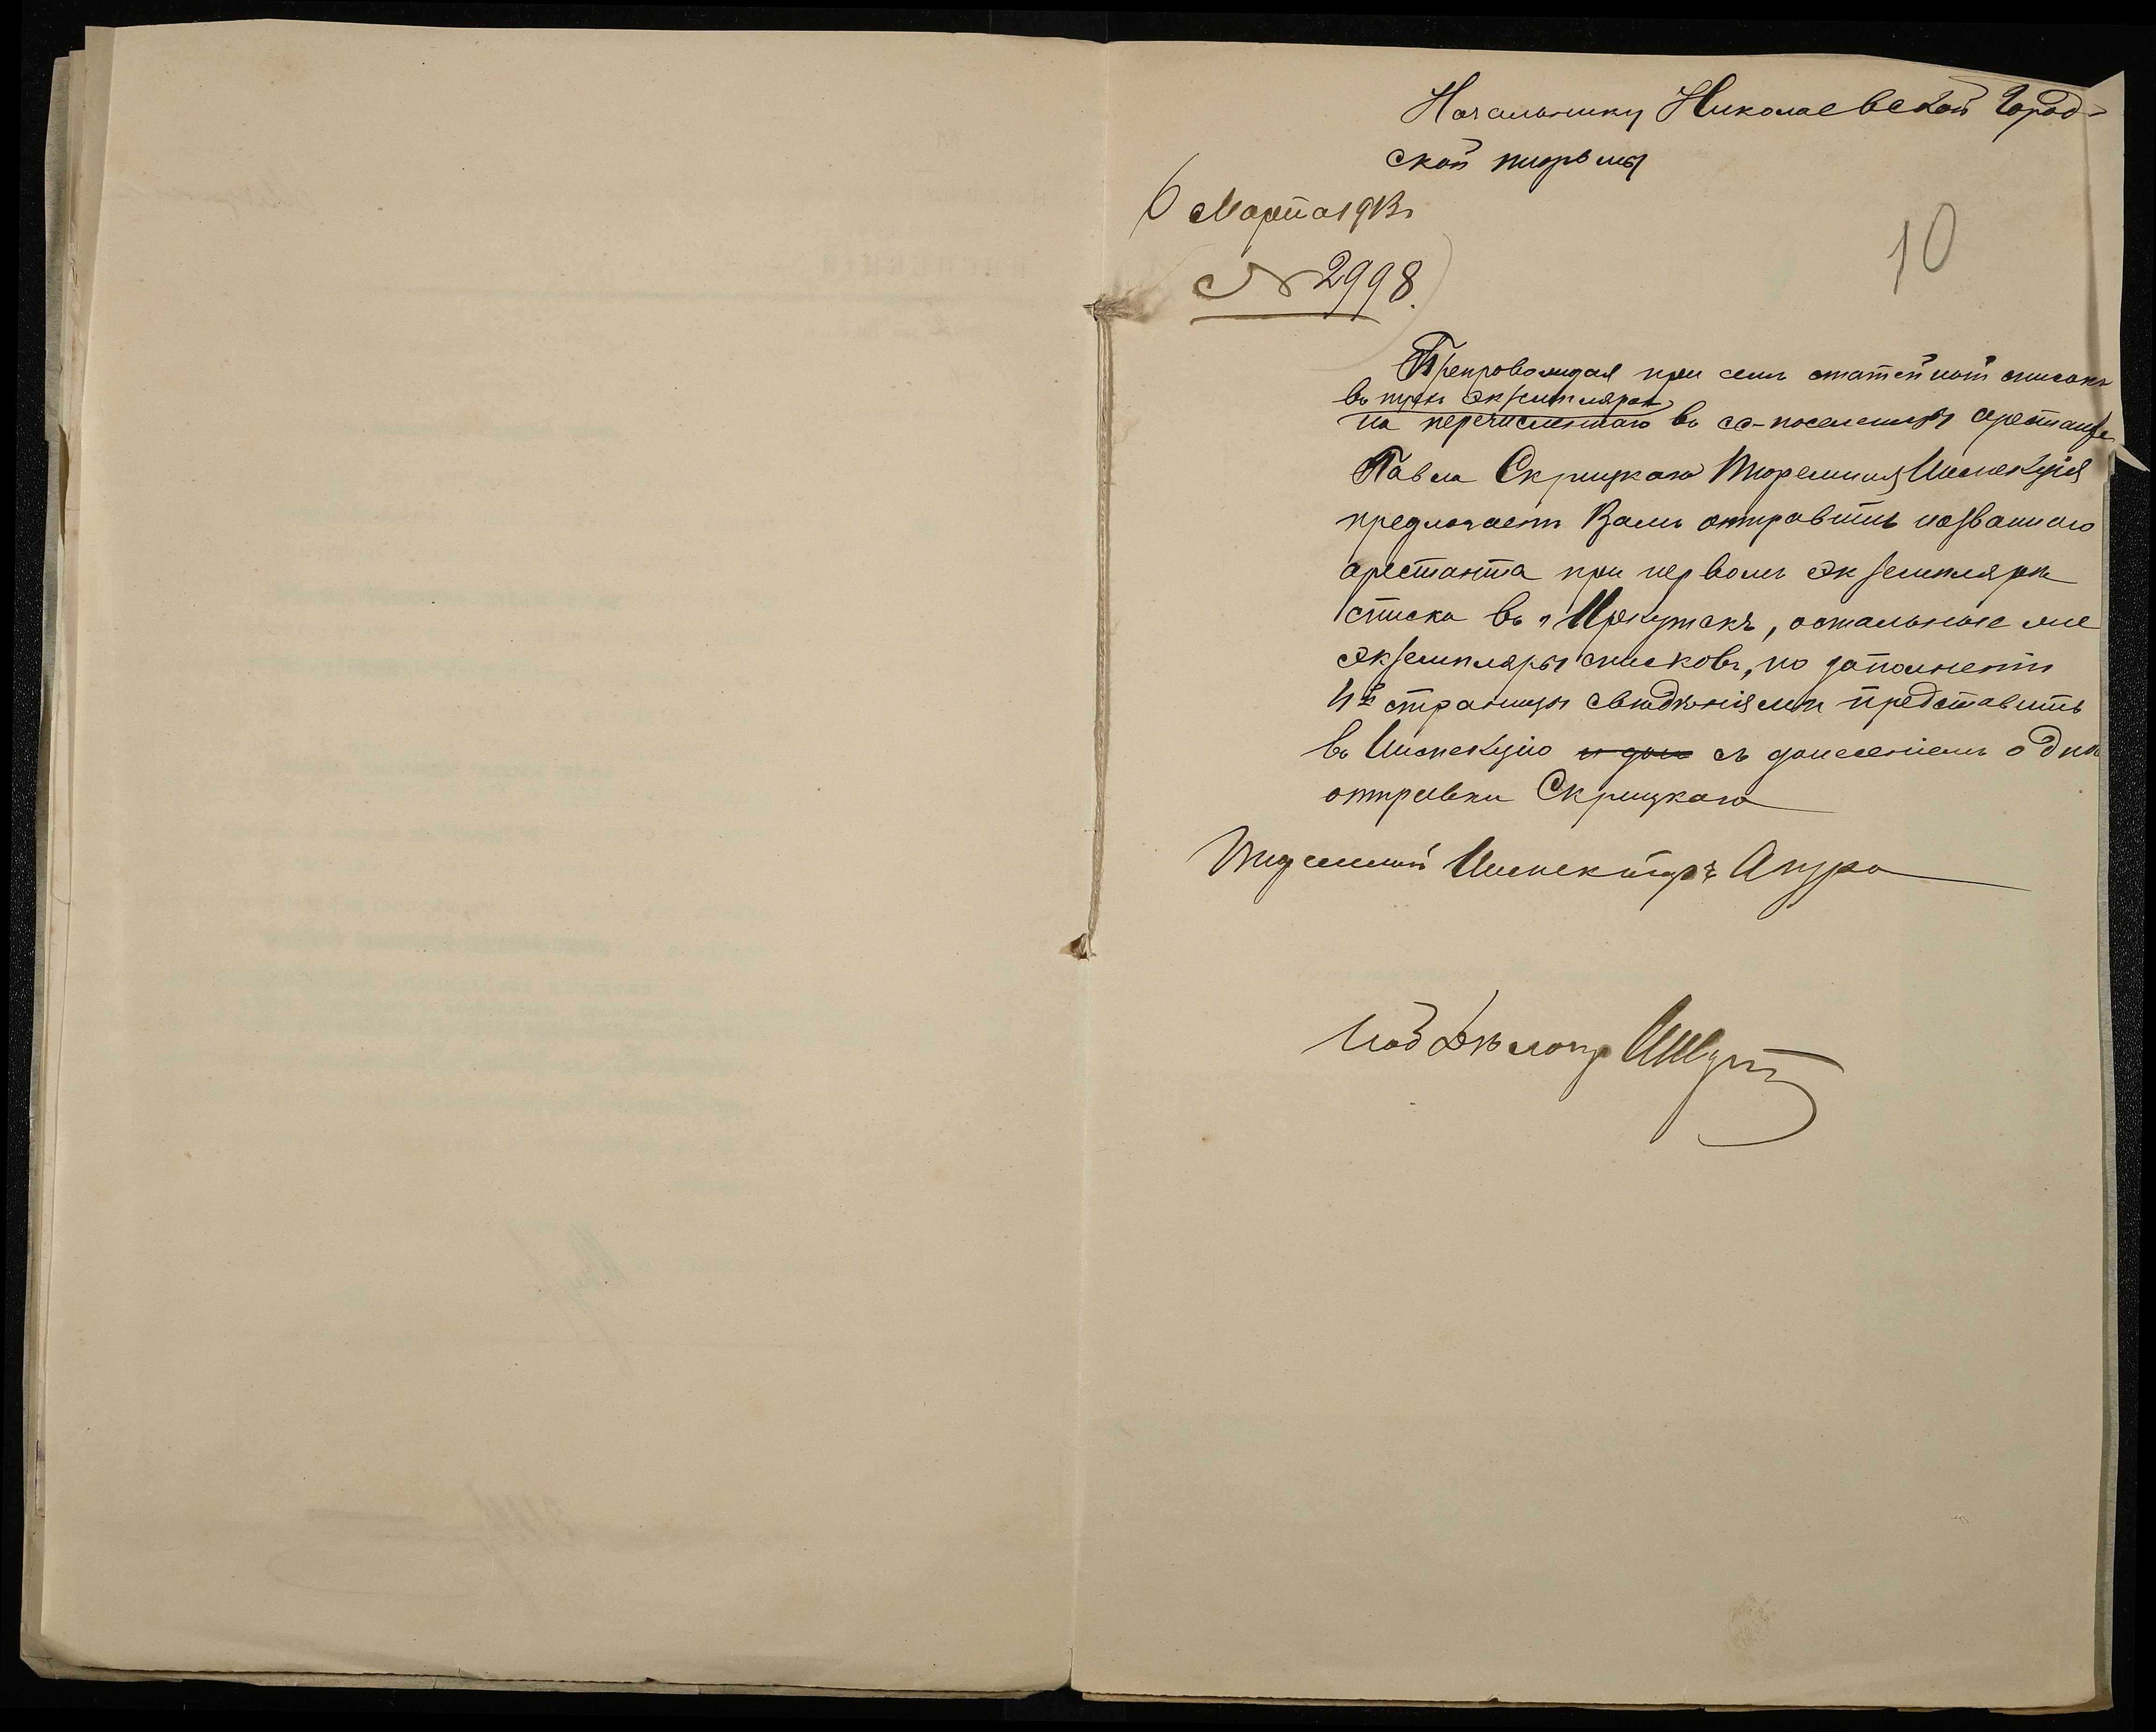 Начальнику Николаевской Город-
ской тюрьмы
6 Марта 1913 г
№ 2998.
10
Препровождая при семъ статейный списокъ
въ трехъ экземплярахъ
на перечисленнаго въ сс-поселенцы арестанта
Павла Скрицкаго Тюремная Инспекція
предлагаетъ Вамъ отправить названнаго
арестанта при первомъ экземплярѣ
списка въ г Иркутскъ, остальные же
экземпляры списковъ, по заполненіи
4й страницы свѣдѣніями представить
въ Инспекцію и дон съ донесеніемъ о днѣ
отправки Скрицкаго
Тюремный Инспекторъ
Дѣлопр